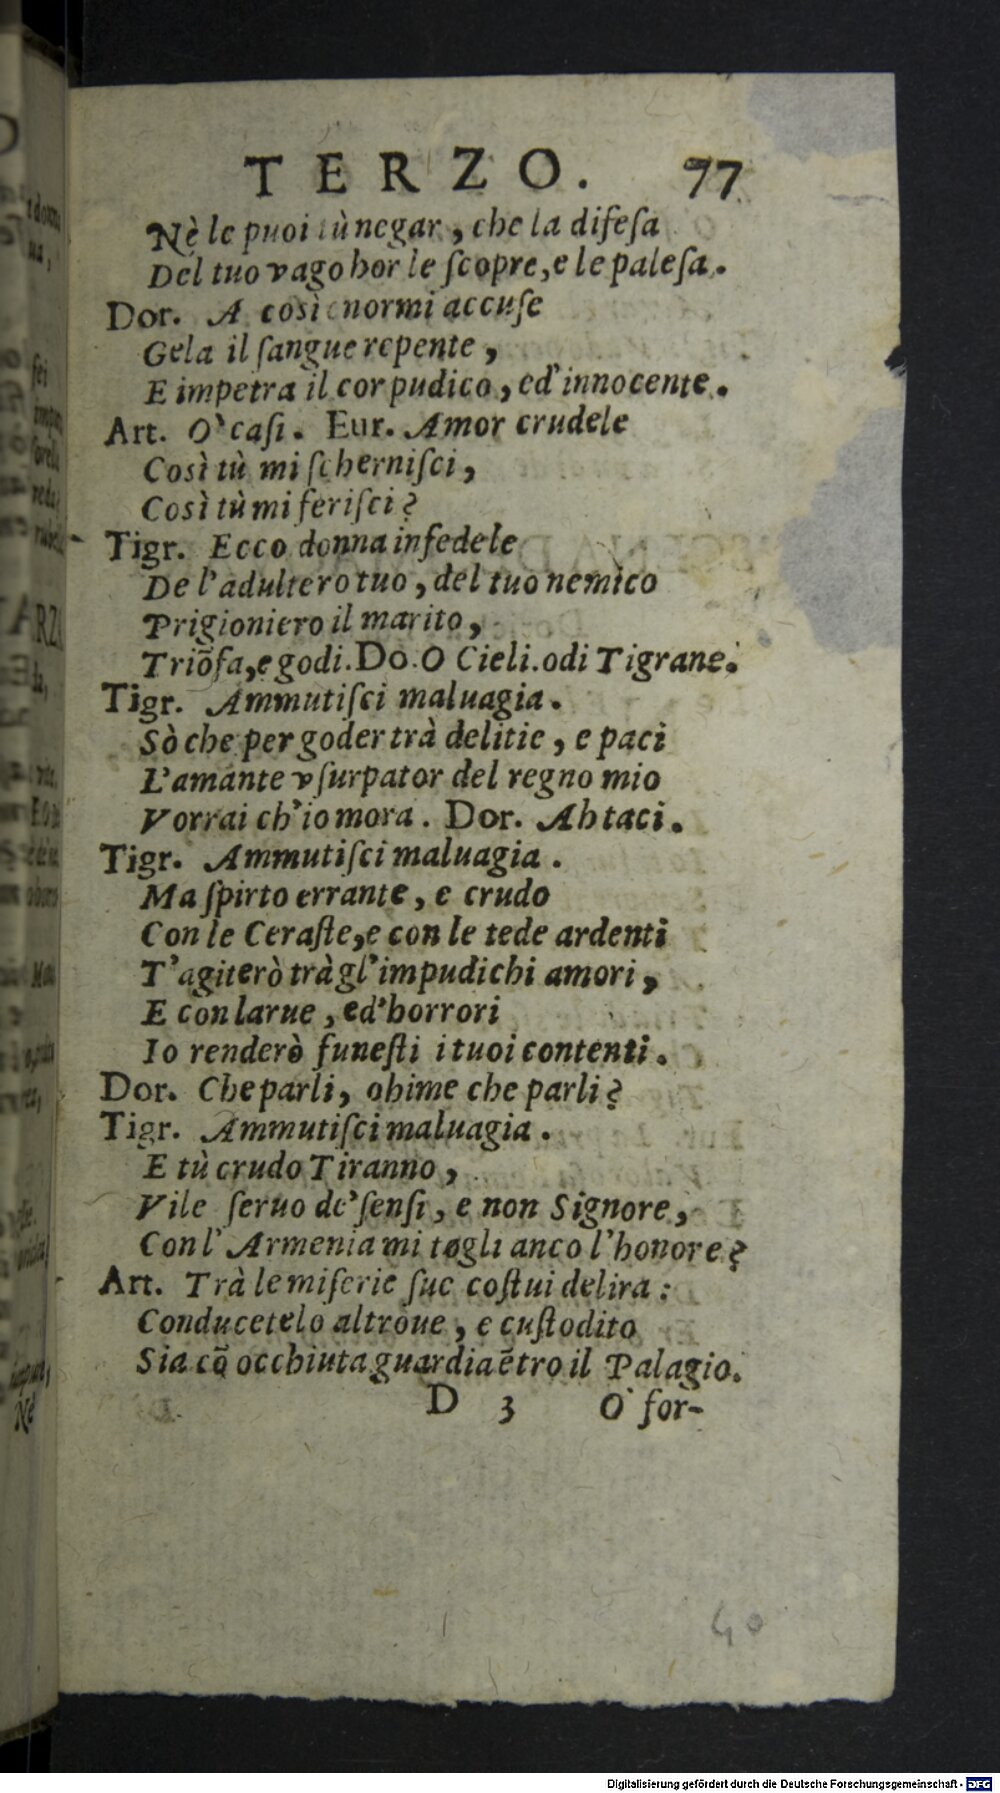 TERZO. 77
Nè le puoi tù negar, che la difeſa
Del tuo vago hor le ſcopre, e le paleſa.
Dor. A così enormi accuſe
Gela il ſangue repente,
E impetra il cor pudico, ed' innocente.
Art. O' caſi. Eur. Amor crudele
Così tù mi ſcherniſci,
Così tù mi feriſci?
Tigr. Ecco donna infedele
De l'adultero tuo, del tuo nemico
Prigioniero il marito,
Triõfa, e godi. Do. O Cieli. odi Tigrane.
Tigr. Ammutiſci maluagia.
Sò che per goder trà delitie, e paci
L'amante vſurpator del regno mio
Vorrai ch'io mora. Dor. Ah taci.
Tigr. Ammutiſci maluagia.
Ma ſpirto errante, e crudo
Con le Ceraſte, e con le tede ardenti
T'agiterò trà gl'impudichi amori,
E con larue, ed' horrori
Io renderò funeſti i tuoi contenti.
Dor. Che parli, ohime che parli?
Tigr. Ammutiſci maluagia.
E tù crudo Tiranno,
Vile ſeruo de' ſenſi, e non Signore,
Con l'Armenia mi togli anco l'honore?
Art. Trà le miſerie ſue coſtui delira:
Conducetelo altroue, e cuſtodito
Sia cõ occhiuta guardia ẽtro il Palagio.
D 3 O' for-
40
Digitalisierung gefördert durch die Deutsche Forschungsgemeinschaft - DFG